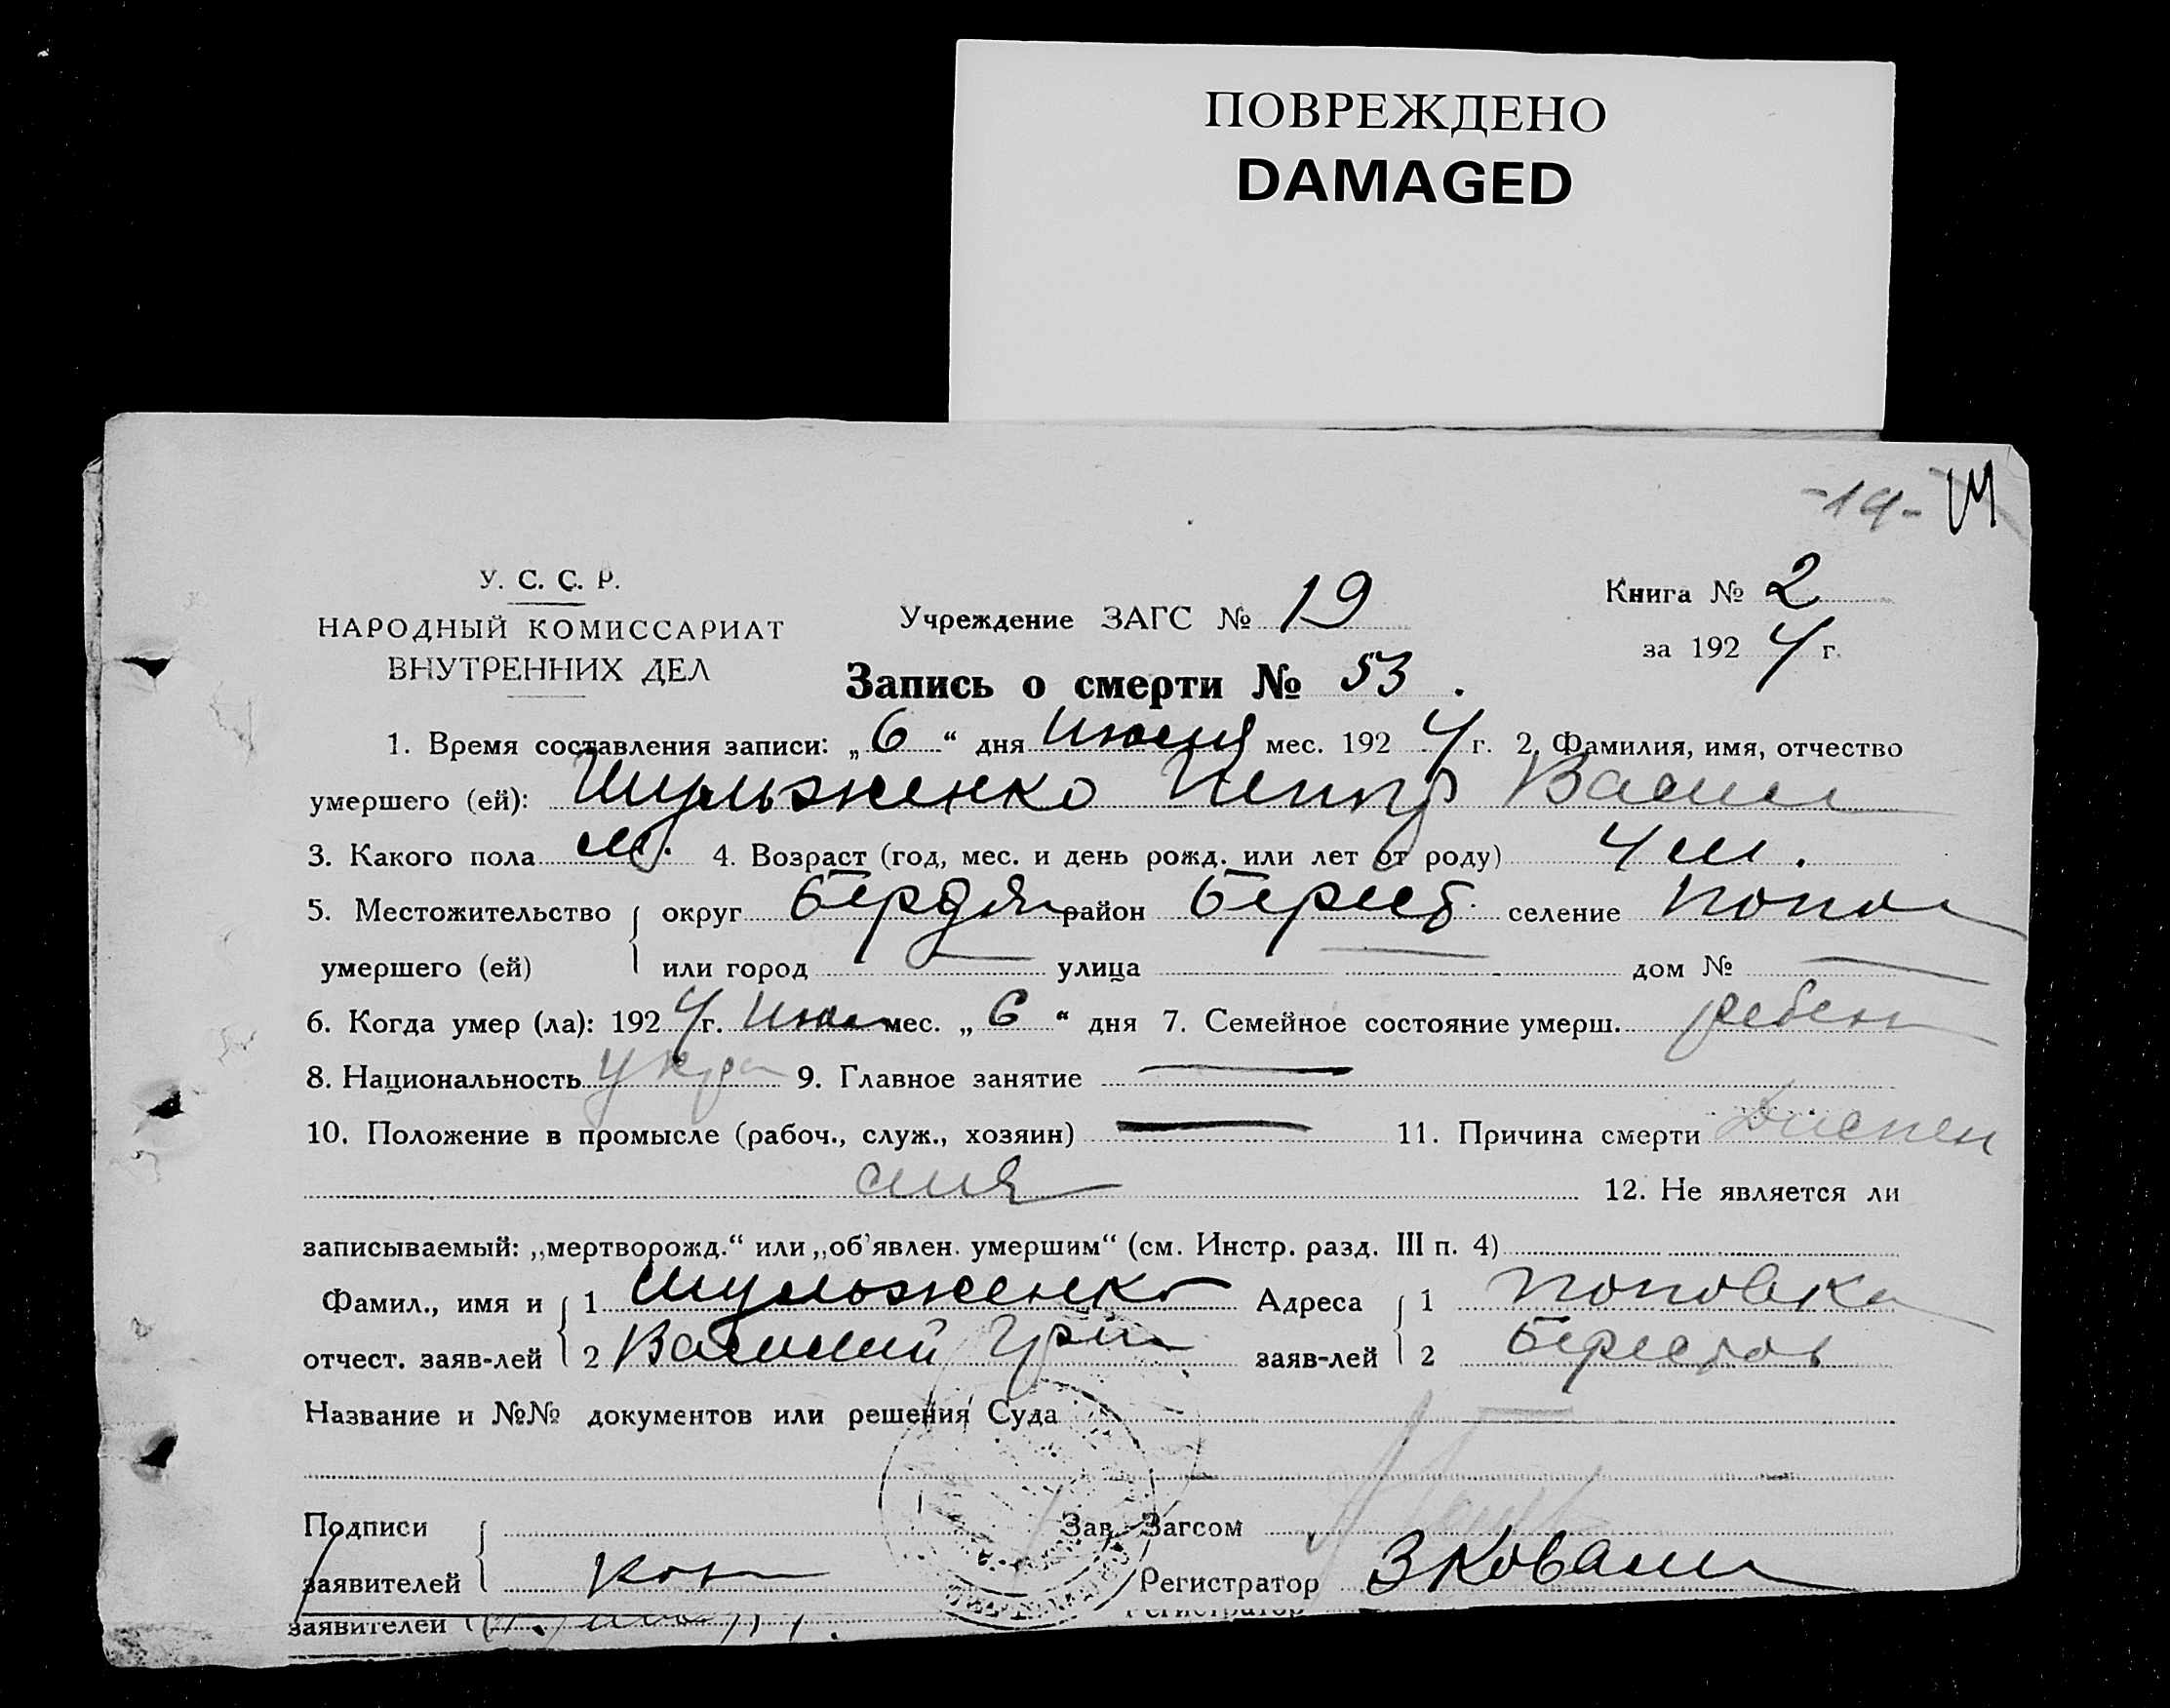 ПОВРЕЖДЕНО
DAMAGED
-14- 14
У. С. С. Р.
НАРОДНЫЙ КОМИССАРИАТ
ВНУТРЕННИХ ДЕЛ
Учреждение ЗАГС № 19
Книга № 2
за 1924 г.
Запись о смерти № 53.
1. Время составления записи: „6“ дня Июня мес. 1924 г. 2. Фамилия, имя, отчество
умершего (ей): Шульженко Петр Васил
3. Какого пола м. 4. Возраст (год, мес. и день рожд. или лет от роду) 4 м.
5. Местожительство округ Бердян район Берест. селение Попов
умершего (ей) или город — улица — дом № —
6. Когда умер (ла): 1924 г. Июн мес. „6“ дня 7. Семейное состояние умерш. ребен
8. Национальность укра 9. Главное занятие —
10. Положение в промысле (рабоч., служ., хозяин) — 11. Причина смерти Диспеп
сия 12. Не является ли
записываемый: „мертворожд.“ или „об'явлен. умершим“ (см. Инстр. разд. III п. 4)
Фамил., имя и 1 Шульженко Адреса 1 Поповка
отчест. заяв-лей 2 Василий Гри заяв-лей 2 Берестов
Название и №№ документов или решения Суда —
Подписи Зав. Загсом
заявителей Регистратор ЗКовали
заявителей Регистратор